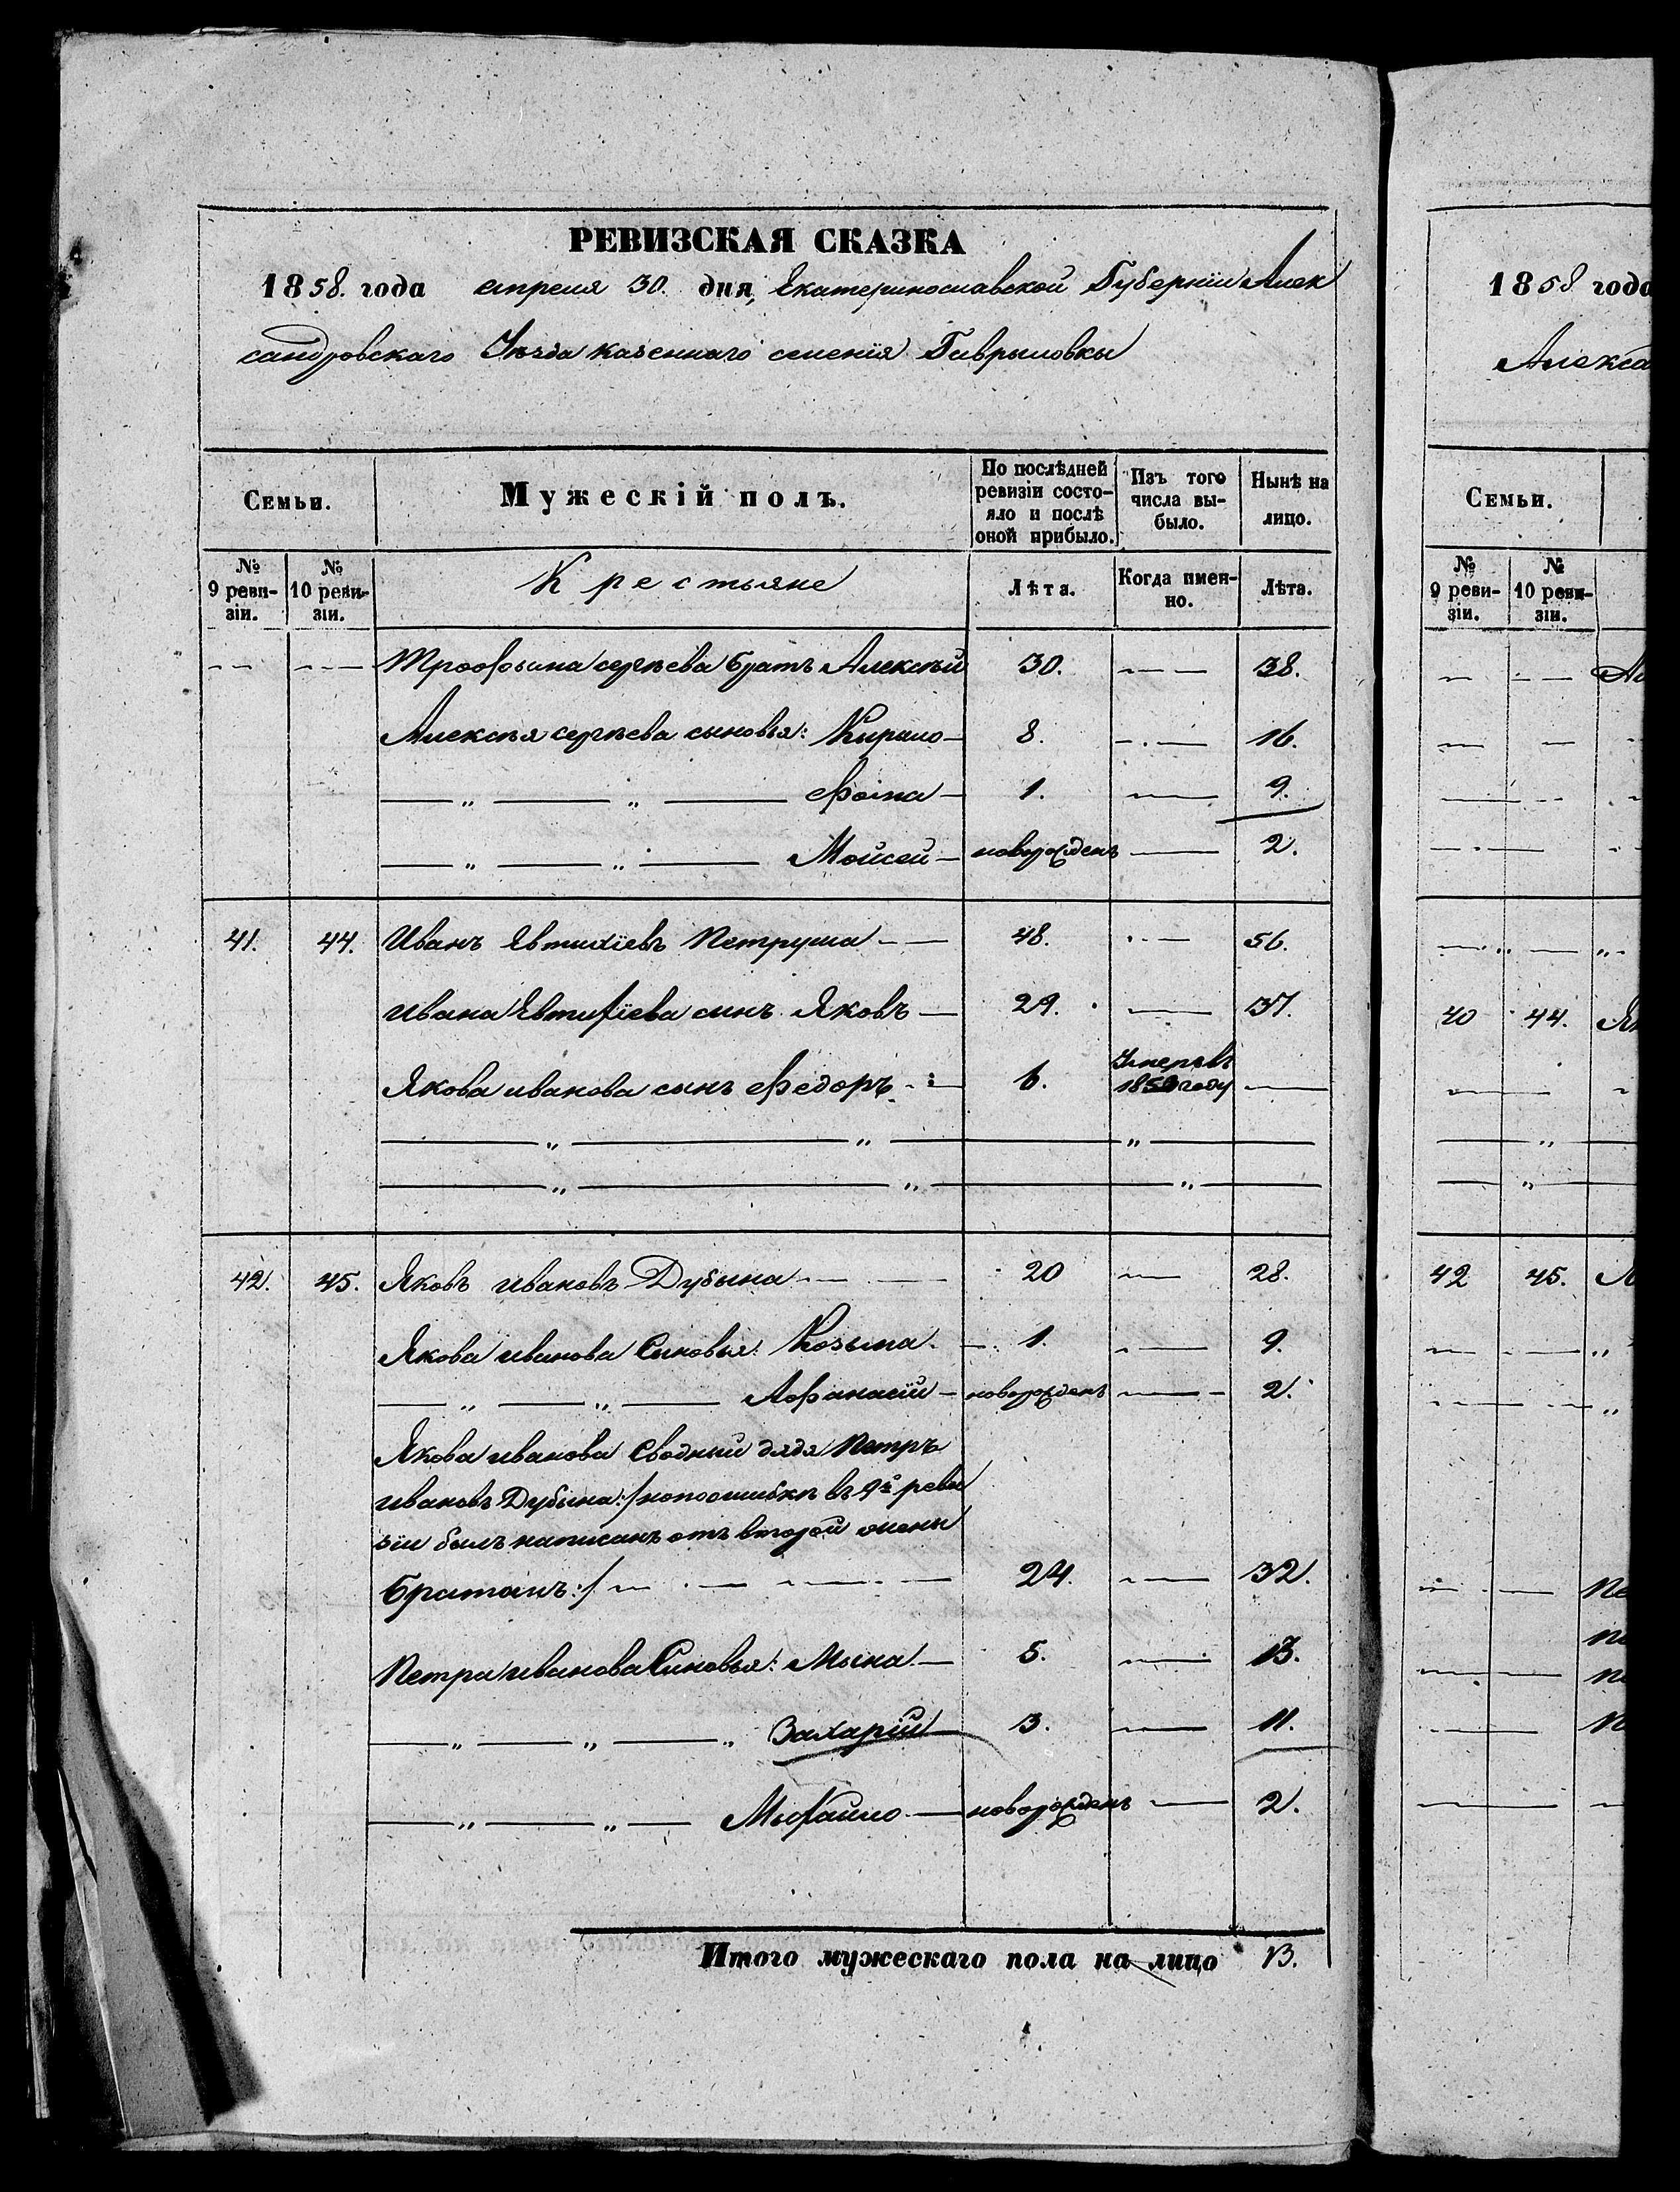 РЕВИЗСКАЯ СКАЗКА
1858. года апреля 30. дня, Екатеринославской Губерніи Алек
сандровскаго Уѣзда казеннаго селенія Гаврыловкы
Семьи.
Мужескій полъ.
По послѣдней ревизіи состо-
яло и послѣ
оной прибыло.
Изъ того
числа вы-
было.
Нынѣ на
лицо.
№
9 реви-
зіи.
№
10 реви-
зіи.
Крестьяне
Лѣта.
Когда имен-
но.
Лѣта.
Трофыма сергѣева братъ Алексѣй 30. 38.
Алексѣя сергѣева сыновья: Кирило 8. 16.
„ „ Фома 1. 9.
„ „ Мойсей новорожденъ 2.
41. 44. Иванъ Евтихіевъ Петруша 48. 56.
Ивана Евтихіева сынъ Яковъ 29. 37.
Якова иванова сынъ Федоръ 6. Умеръ въ
185 году
„ „ „
„ „ „
42. 45. Яковъ ивановъ Дубына 20 28.
Якова иванова Сыновья: Козьма 1. 9.
„ „ Афанасій новорожденъ 2.
Якова иванова Сводный дядя Петръ
ивановъ Дубына:/ но по ошибкѣ в 9й реви
зіи былъ написанъ отъ второй жены
братомъ:/ 24. 32.
Петра иванова Сыновья: Мына 5. 13.
„ „ „ Захарій 3. 11.
„ „ Мыхайло новорожденъ 2.
Итого мужескаго пола на лицо 13.
1858 года
Алекса
Семьи.
№
9 реви-
зіи.
№
10 реви-
зіи.
40 44. Як
42 45.